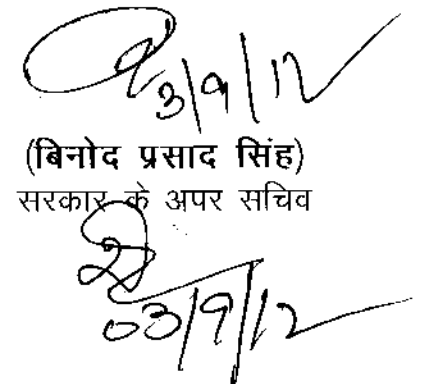 3/9/12
(बिनोद प्रसाद सिंह)
सरकार के अपर सचिव
03/9/12